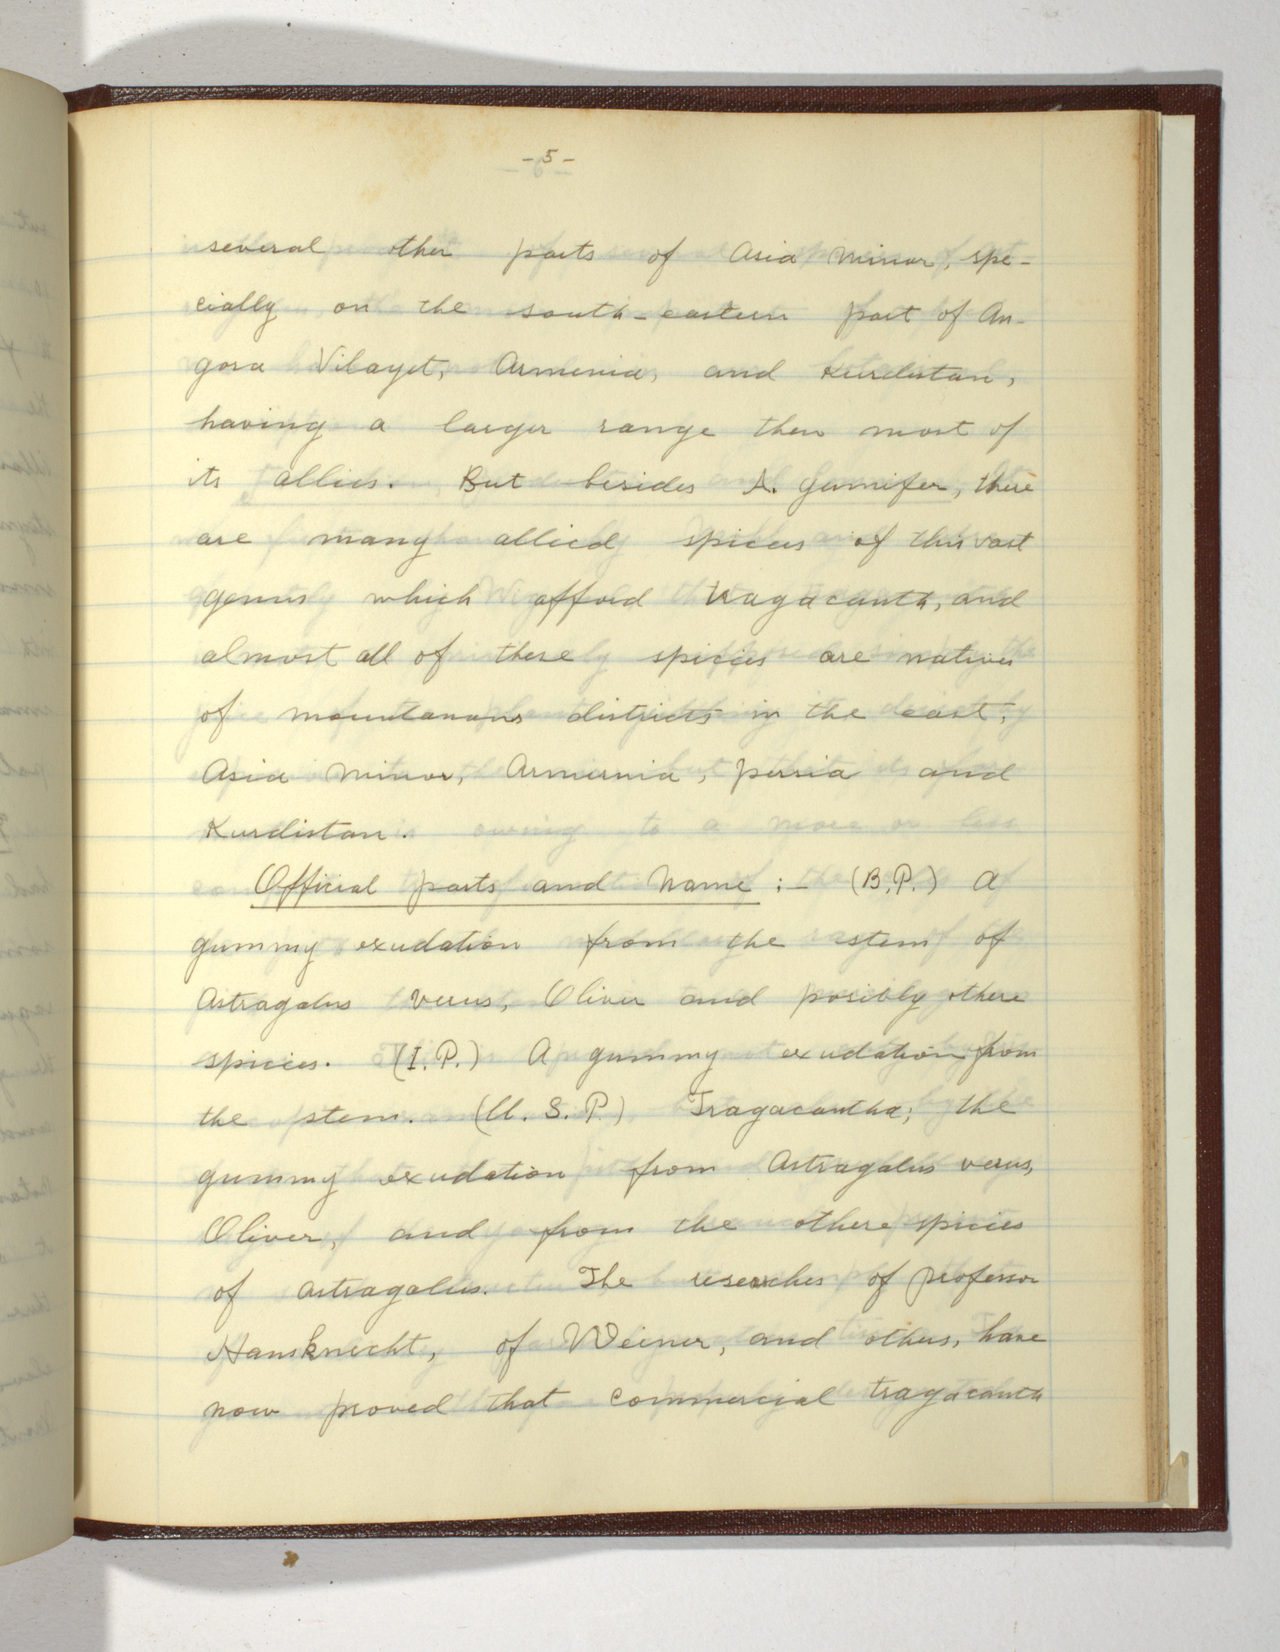 - 5 -
several other parts of Asia Minor, spe-
cially on the south-eastern part of An-
gora Vilayet, Armenia, and Kurdistan,
having a larger range then most of
its allies. But besides A. gumnifer, there
are many allied spicies of this vast
genus which afford tragacanth, and
almost all of these spicies are natives
of mountanans districts in the east,
Asia Minor, Armernia, persia and
Kurdistan.
Official parts and Name :- (B.P.) A
gummy exudation from the stem of
Astragalus verus, Oliver and posibly othere
spicies. (I.P.) A gummy exudation from
the stem. (U.S.P.) Tragacantha; the
gummy exudation from Astragalus verus,
Oliver, and from the othere spicies
of astragalus. The researches of professor
Hansknecht, of Weiner, and others, have
now proved that commercial tragacanth